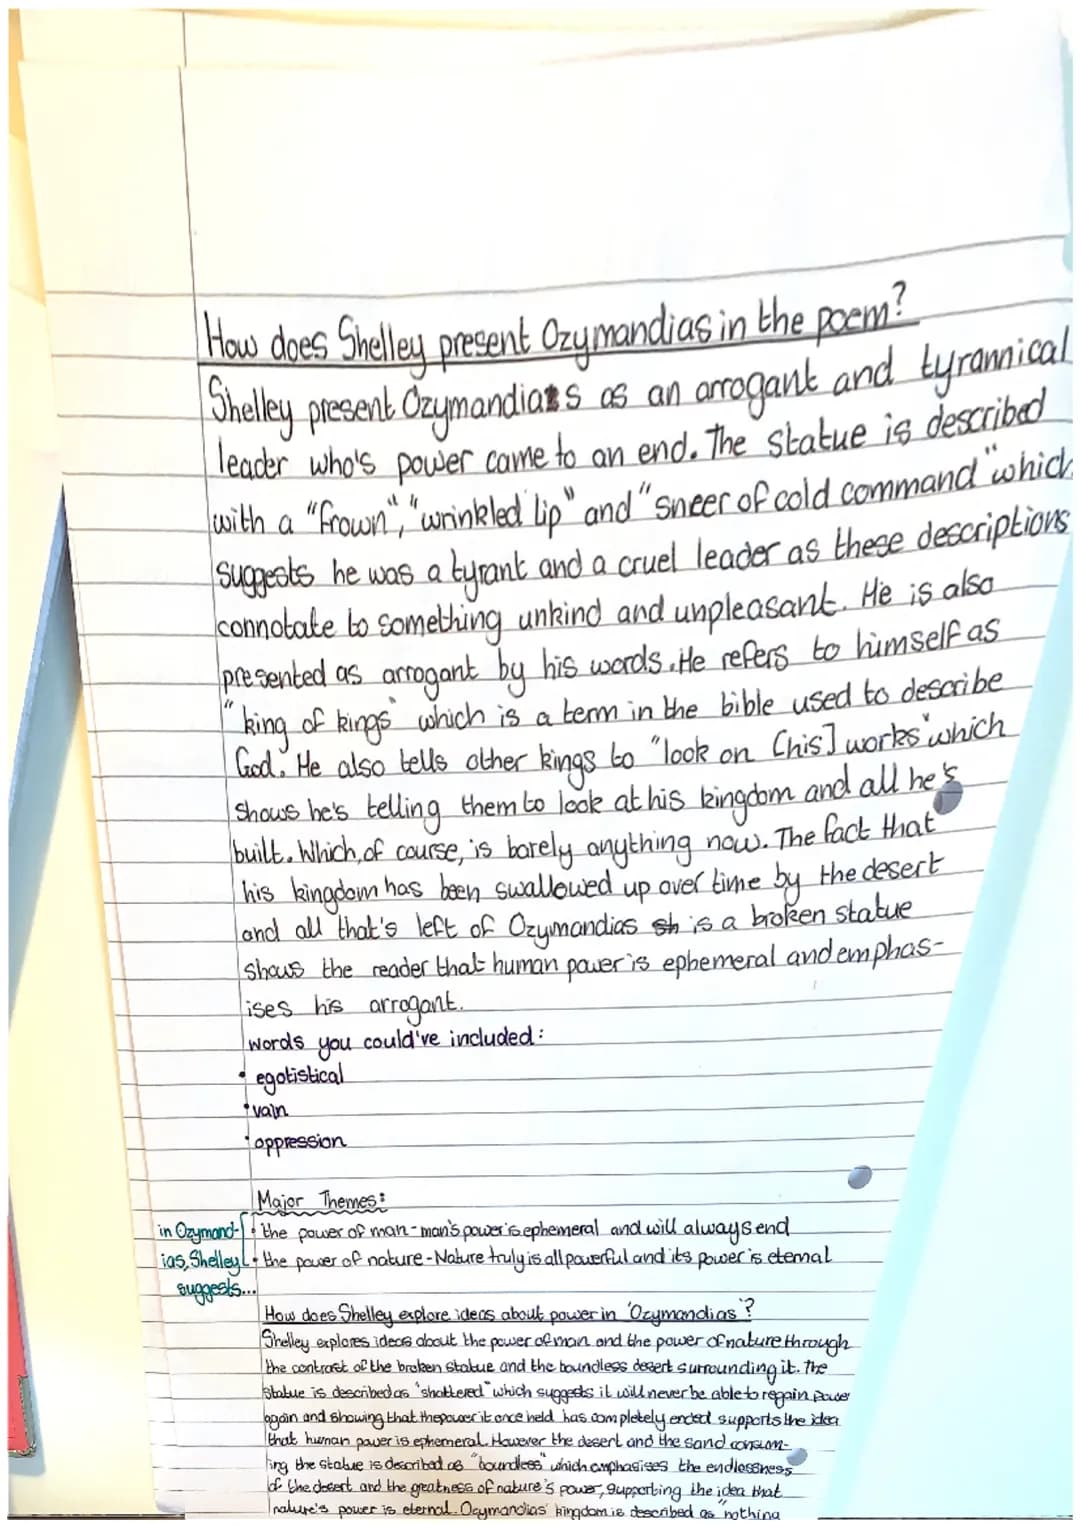 How does Shelley present Ozymandias in the poem?
Shelley present Ozymandias as an arrogant and tyrannical
leader who's power came to an end. The statue is described
with a "frown", "wrinkled lip" and "sneer of cold command" which
suggests he was a tyrant and a cruel leader as these descriptions
connotate to something unkind and unpleasant. He is also
presented as arrogant by his words. He refers to himself as
"king of kings" which is a term in the bible used to describe
God. He also tells other kings to "look on [his] works" which
shows he's telling them to look at his kingdom and all he's
built. Which, of course, is barely anything now. The fact that
his kingdom has been swallowed up over time by the desert
and all that's left of Ozymandias is a broken statue
shows the reader that human power is ephemeral and emphas-
ises his arrogant.
words you could've included:
• egotistical
• vain
• oppression
Major Themes:
in Ozymand- • the power of man - man's power is ephemeral and will always end
ias, Shelley • the power of nature - Nature truly is all powerful and its power is eternal
suggests...
How does Shelley explore ideas about power in 'Ozymandias'?
Shelley explores ideas about the power of man and the power of nature through
the contrast of the broken statue and the boundless desert surrounding it. The
statue is described as "shattered" which suggests it will never be able to regain power
again and showing that the power it once held has completely ended supports the idea
that human power is ephemeral. However the desert and the sand consum-
ing the statue is described as "boundless" which emphasises the endlessness
of the desert and the greatness of nature's power, supporting the idea that
nature's power is eternal. Ozymandias' kingdom is described as "nothing